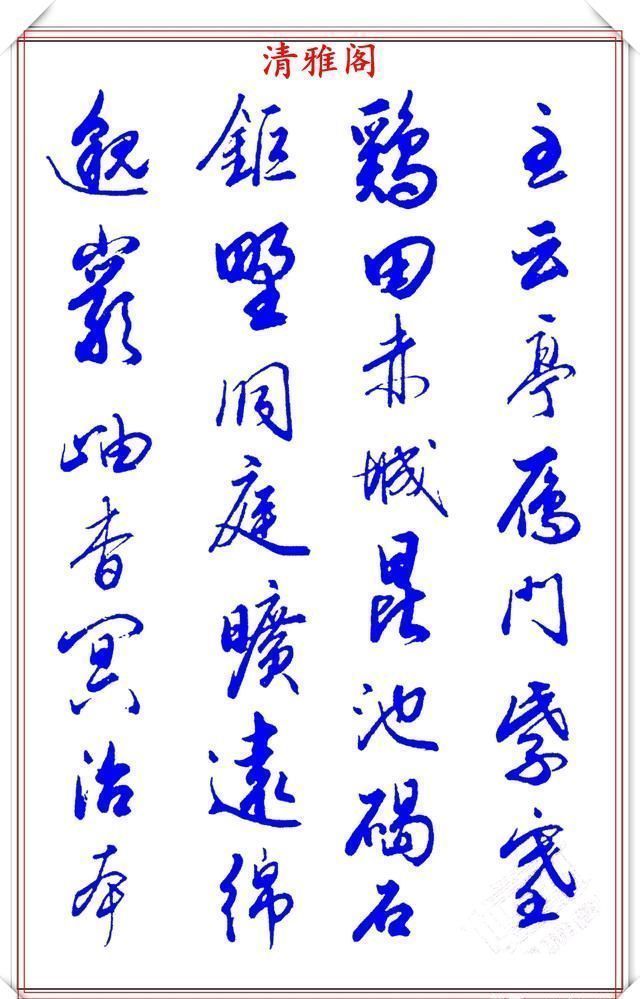 清雅阁
主云亭鴈門紫塞
鷄田赤城昆池碣石
鉅野洞庭曠遠綿
邈巖岫杳冥治本